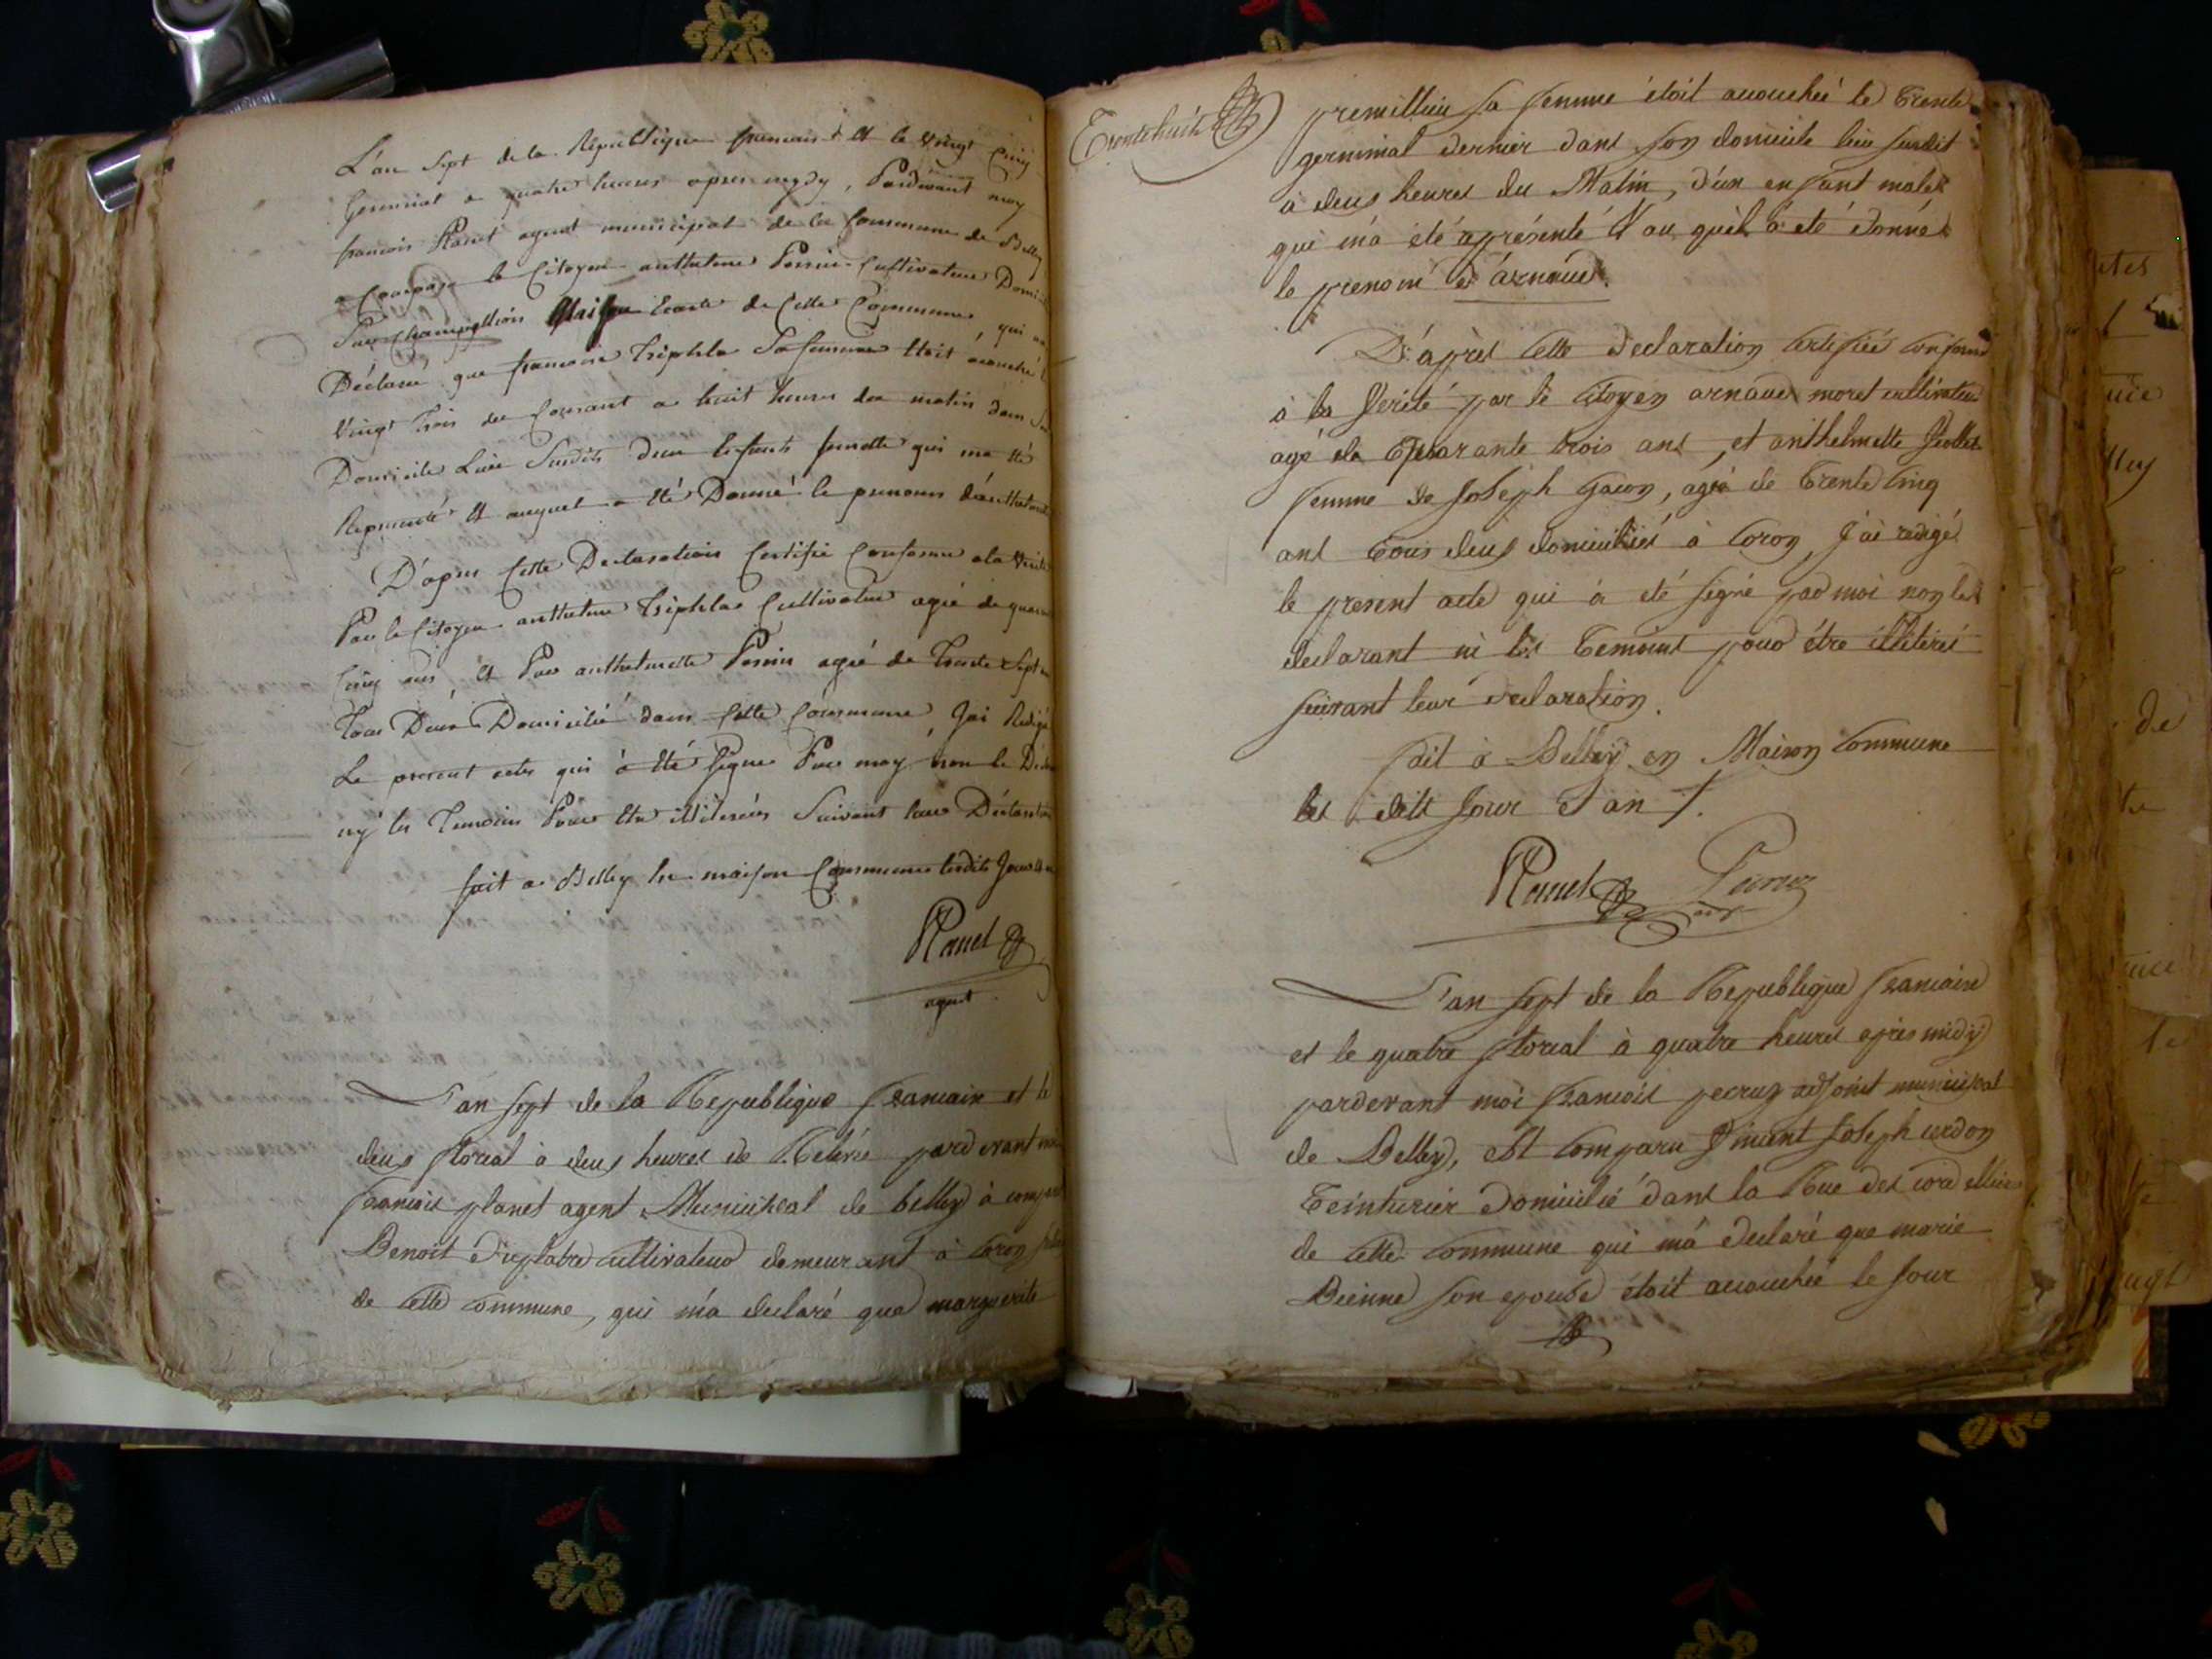 L'an sept de la République francaise & le vingt cinq
Germinal a quatre heures apres midy, Pardevant moy
francois Planet agent municipal de la Commune de Belley
a Comparu le Citoyen anthelme Perrin Cultivateur
Sur Champollion Maison Ecarté de Cette Commune, qui
Déclaré que francoise Triphle Sa femme Etoit acouché
Vingt Trois du Courant a huit heures du matin dans
Domicile Lieu Sudits d'un Enfant femelle qui ma été
Représenté & auquel a été Donné le prenom d'anthelmette
D'apres Cette Declaration Certifié Conforme a la Vérité
Par le Citoyen anthelme Triphle Cultivateur agé de
Cinq ans, & Par anthelmette Perrin agée de Trente Sept
Tous Deux Domicilié dans Cette Commune Jai Redigé
Le present acte qui à été Signé Par moy non le
ny les Temoins Pour être illiterées Suivant leur Déclaration
fait a Belley En maison Commune lesdits Jour &
Planet
agent
L'an sept de la Republique francaise et le
deux floreal à deux heures de Relevée pardevant moi
francois planet agent Municipal de belley à comparu
Benoit Trephle cultivateur demeurant à Coron
de cette commune, qui m'a declaré que marguerite
Trentehuit
premillieu sa femme étoit acouchée le Trente
germinal dernier dans son domicile lieu susdit
à deux heures du Matin, d'un enfant male
qui m'à été aprésénté & au quèl à été donné
le prenom d'arnaud.
D'après cette declaration certifiée conforme
à la Verité par le citoyen arnaud moret cultivateur
agé de Quarante trois ans, et anthelmette
femme de Joseph gacon, agée de Trente cinq
ans tous deux domiciliés à Coron, J'ai redigé
le present acte qui à été signé par moi non le
declarant ni les Temoins pour étre illiterés
suivant leur declaration.
fait à Belley en Maison commune
les dits Jour & an
Planet Pecruz
L'an sept de la Republique francaise
et le quatre floreal à quatre heures après midy
pardevant moi francois pecruz adjoint municipal
de Belley, est comparu Vincent Joseph cerdon
Teinturier domicilié dans la Rue des cordelliers
de cette commune qui m'à declaré que marie
Bienne son epouse étoit acouchée le Jour